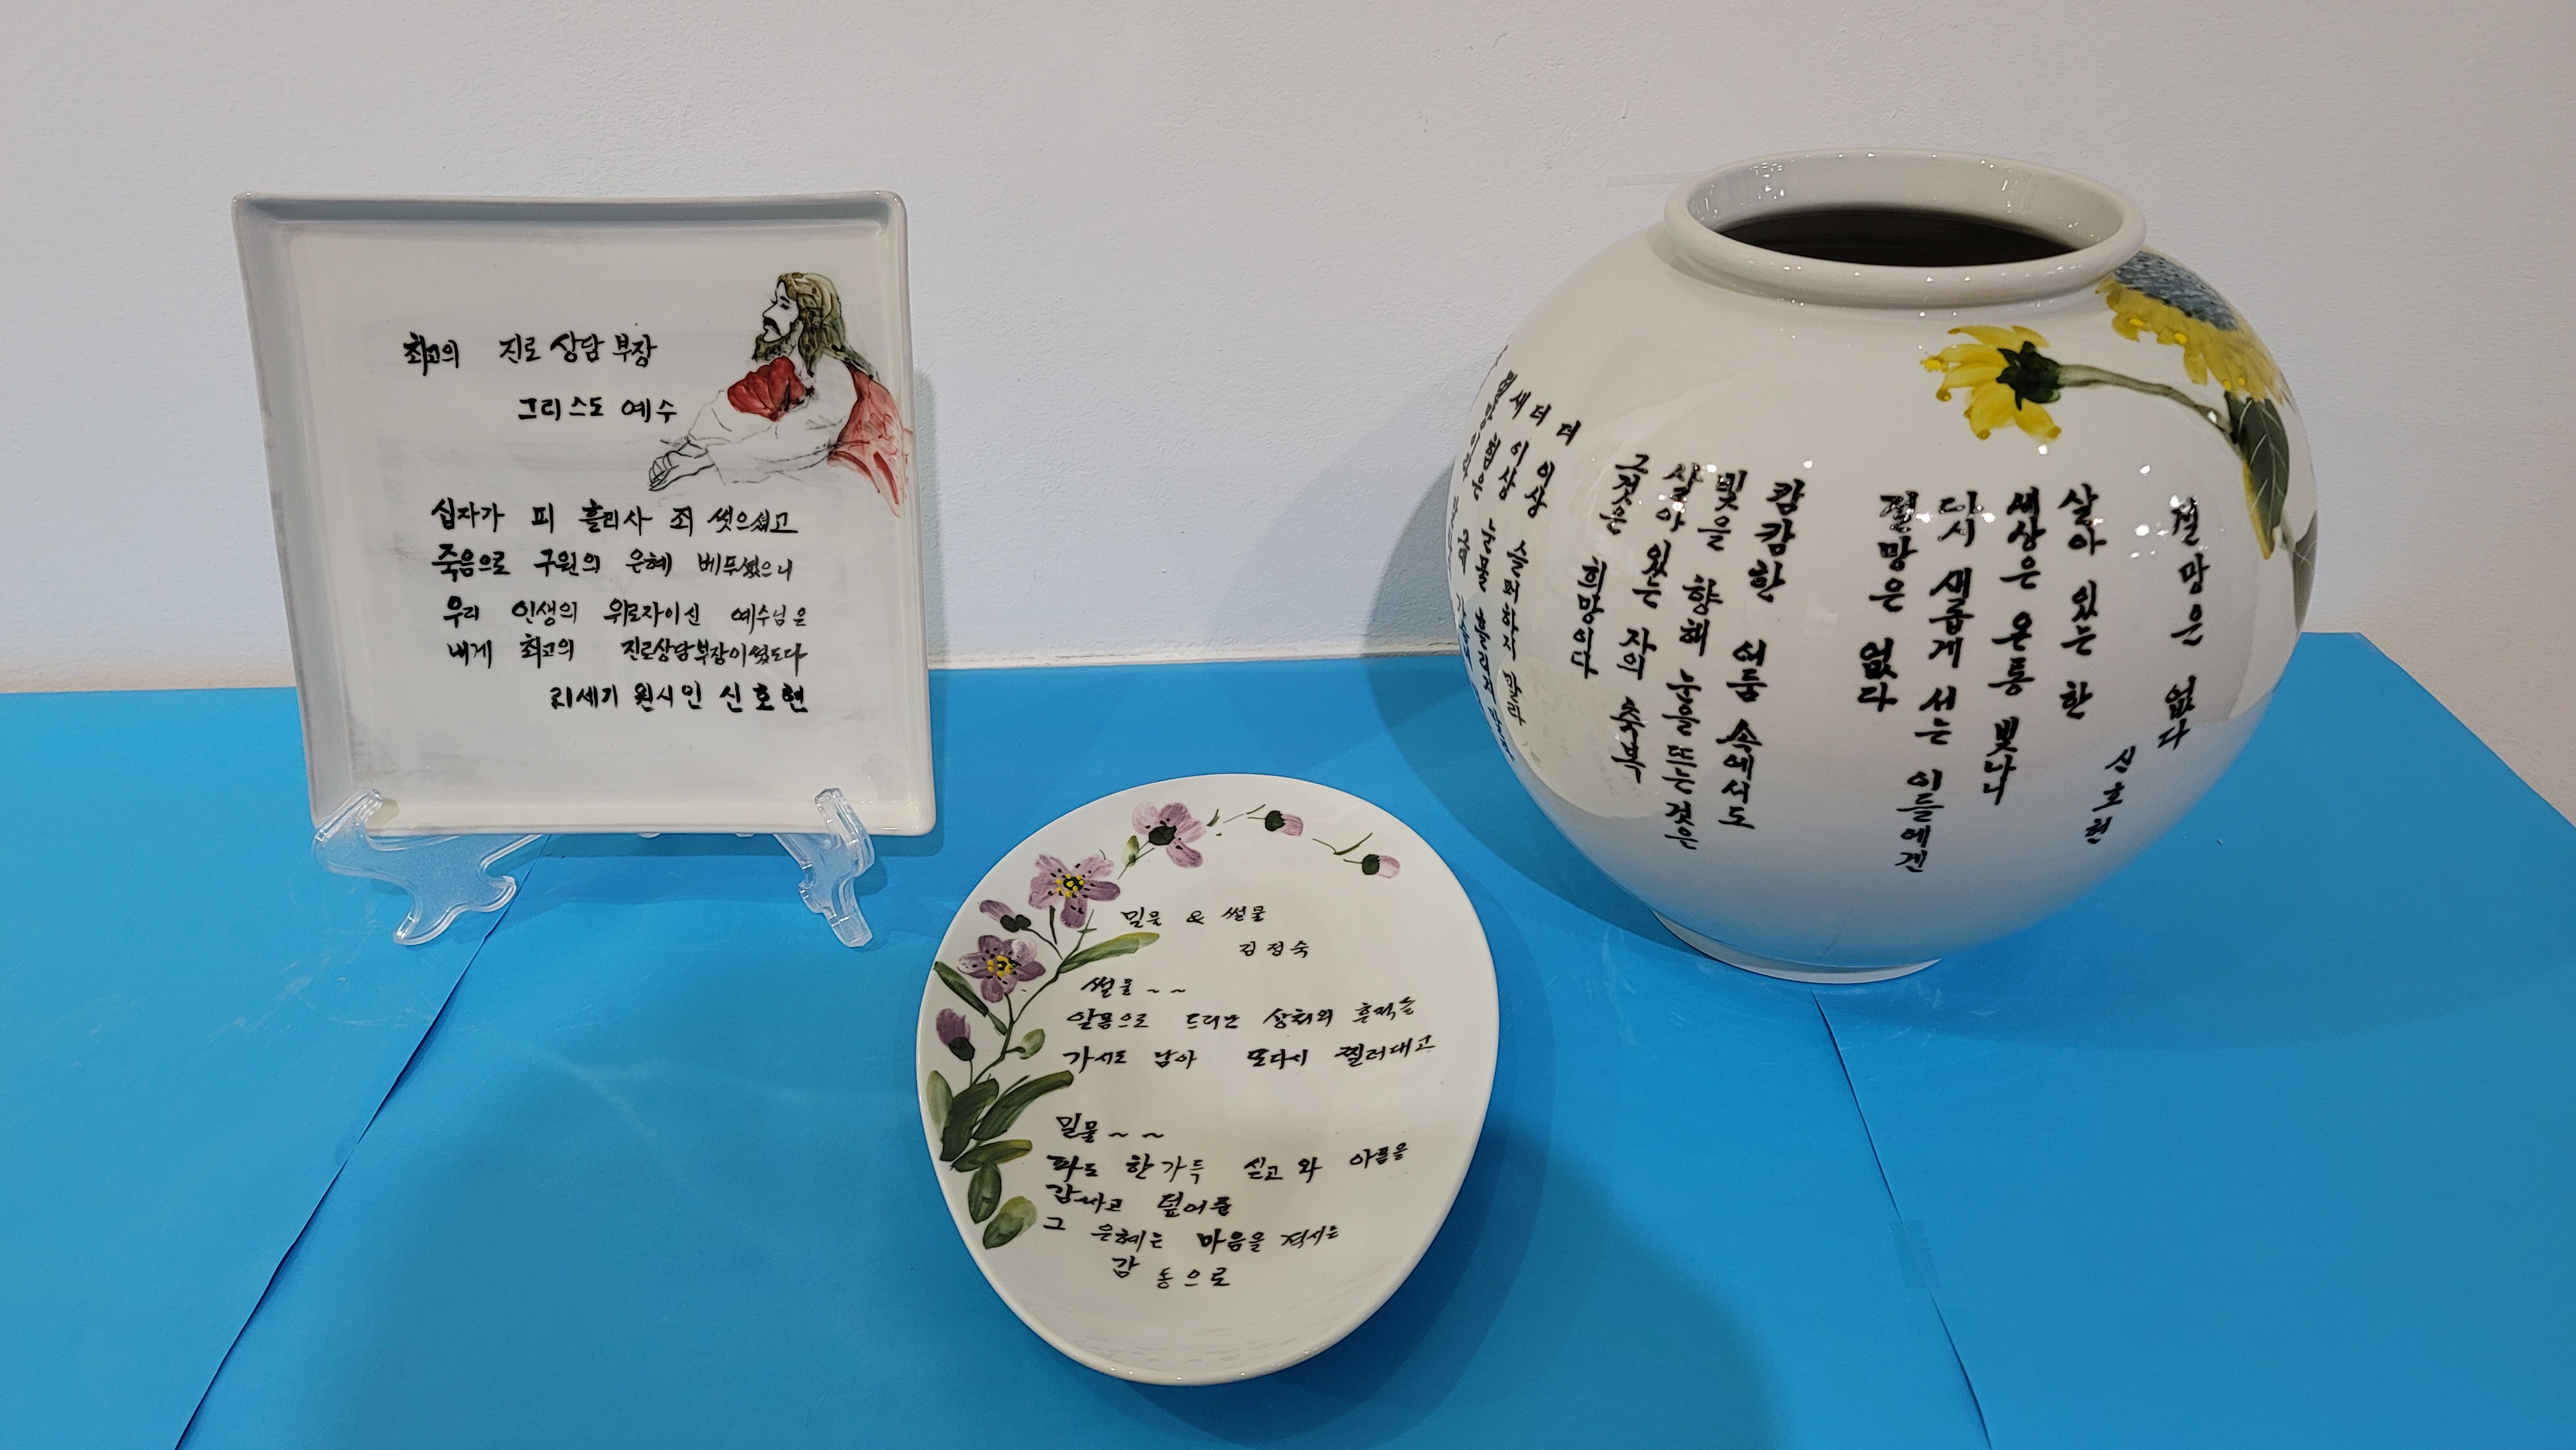 최고의 진로 상담 부장
그리스도 예수
십자가 피 흘리사 죄 씻으셨고
죽음으로 구원의 은혜 베푸셨으니
우리 인생의 위로자이신 예수님은
내게 최고의 진로상담부장이셨도다
21세기 원시인 신호현
밀물 & 썰물
김정숙
썰물~~
알몸으로 드러난 상처의 흔적들
가시로 남아 또다시 찔러대고
밀물~~
파도 한가득 싣고 와 아픔을
감싸고 덮어준
그 은혜는 마음을 적시는
감동으로
절망은 없다
신호현
살아 있는 한
세상은 온통 빛나니
다시 새롭게 서는 이들에겐
절망은 없다
캄캄한 어둠 속에서도
빛을 향해 눈을 뜨는 것은
살아 있는 자의 축복
그것은 희망이다
더 이상 슬퍼하지 말라
더 이상